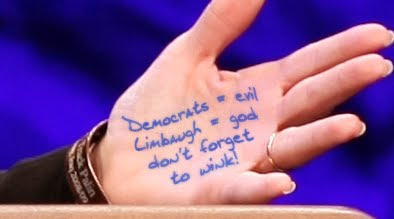 Democrats = evil
Limbaugh = god
don't forget
to wink!